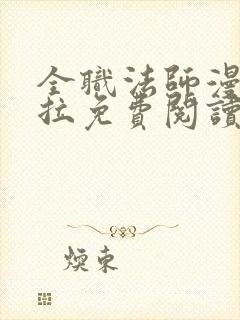 全職法師漫
拉免費閱讀
煐東